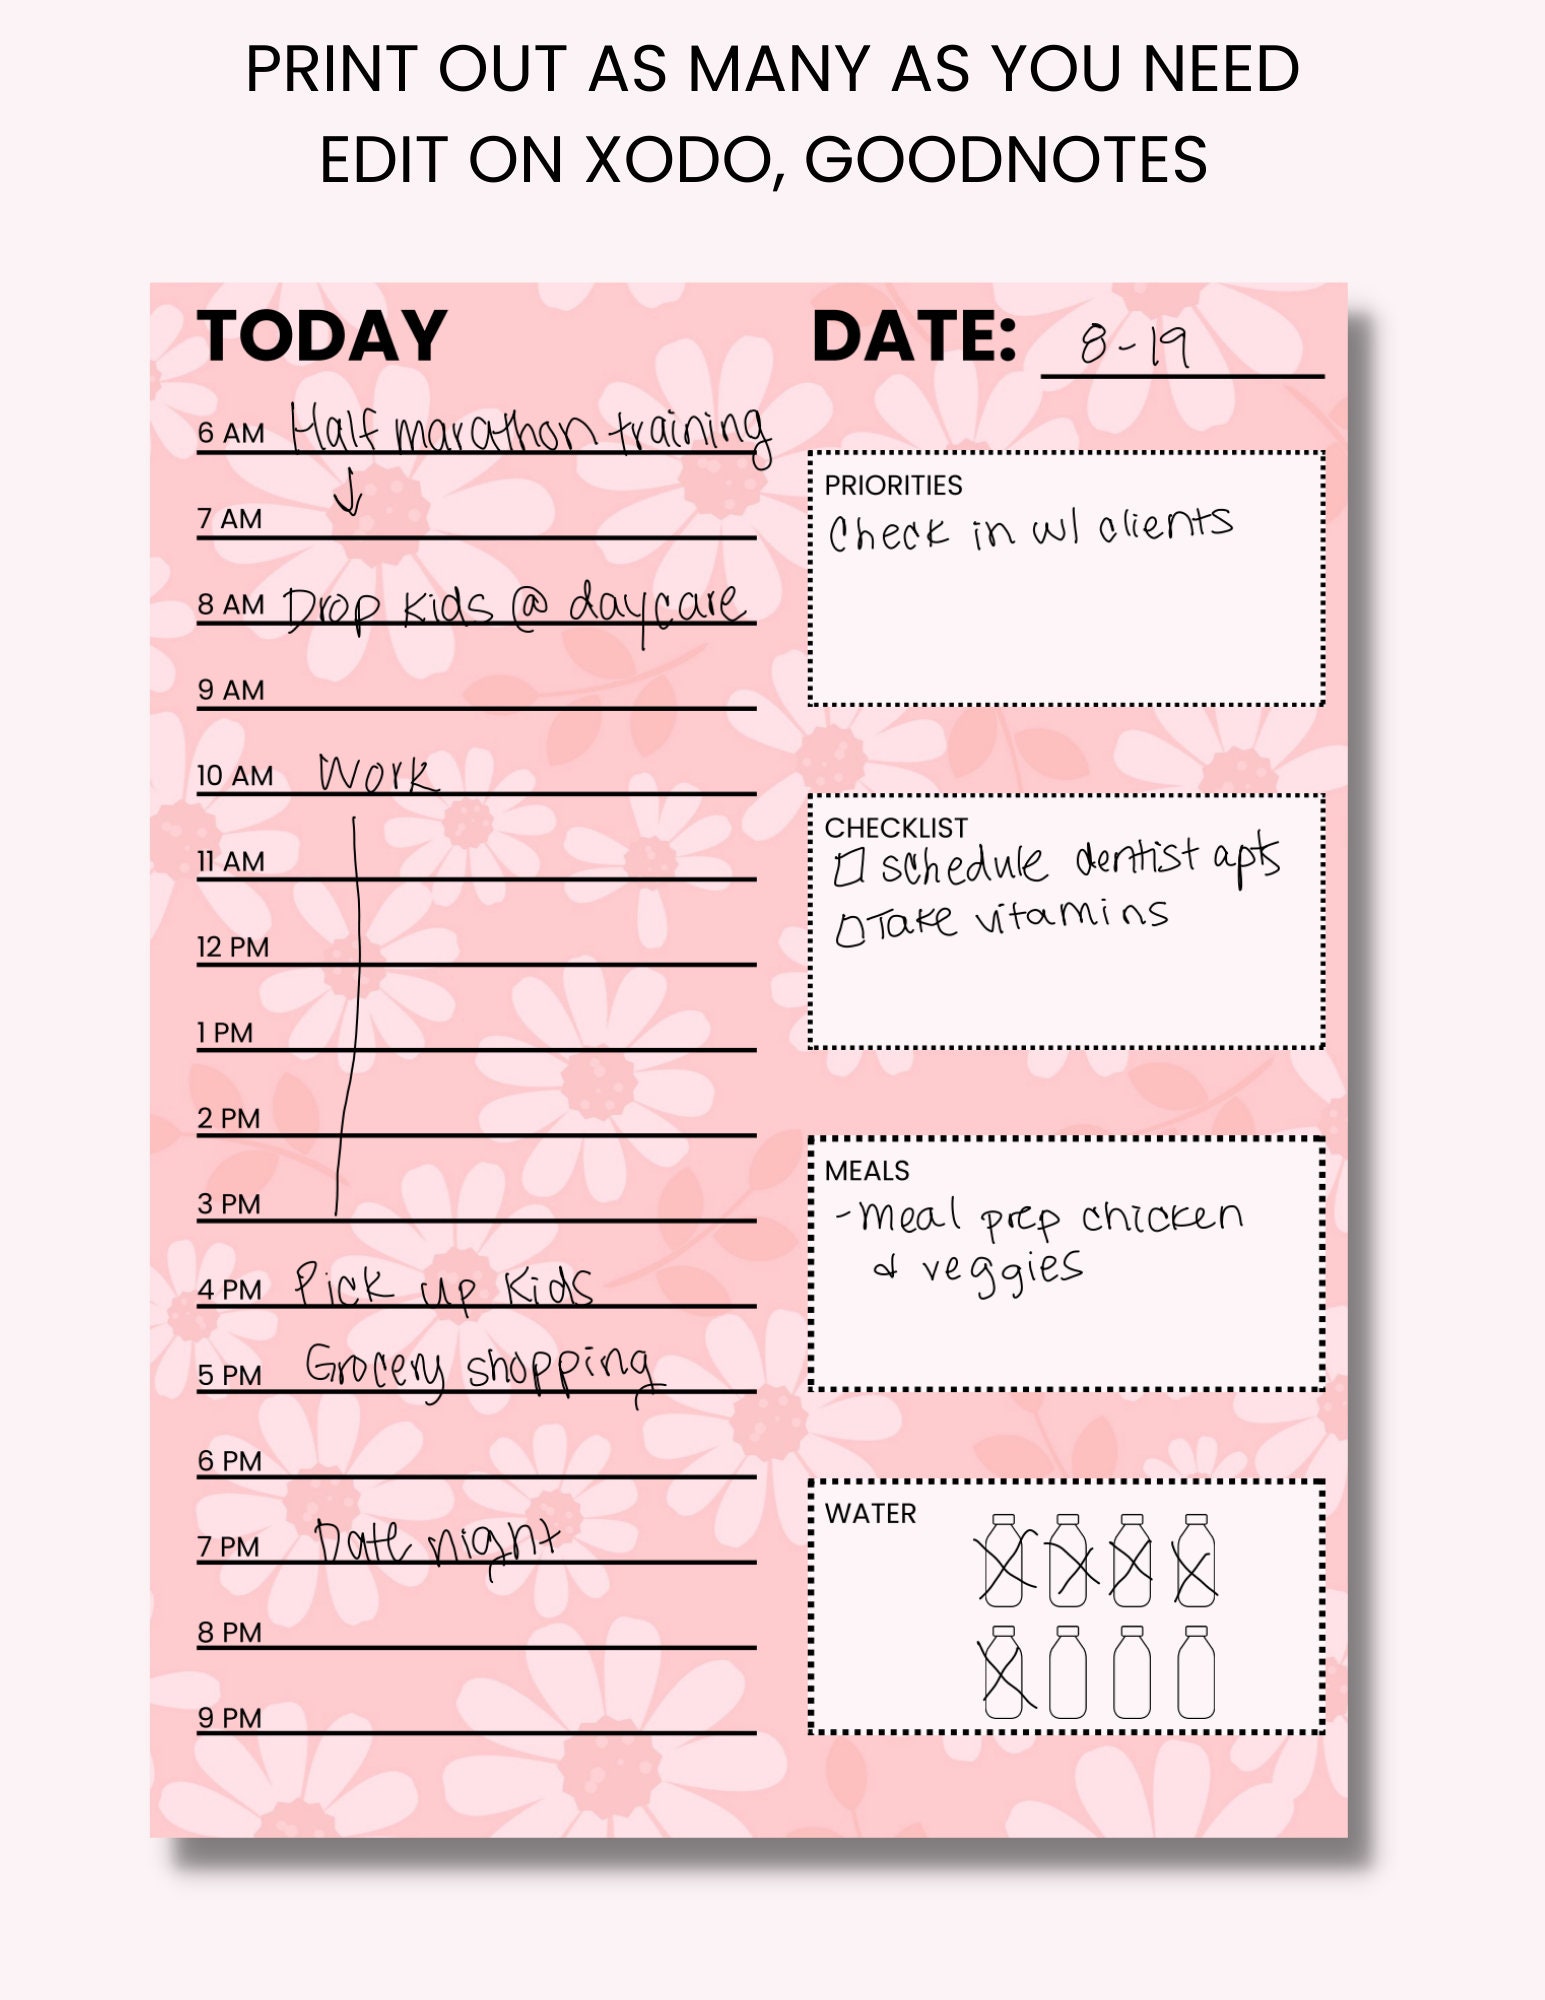 PRINT OUT AS MANY AS YOU NEED
EDIT ON XODO, GOODNOTES
TODAY
6 AM Half marathon training
7 AM
8 AM Drop kids @ daycare
9 AM
10 AM Work
11 AM
12 PM
1 PM
2 PM
3 PM
4 PM Pick up kids
5 PM Grocery shopping
6 PM
7 PM Date night
8 PM
9 PM
DATE: 8-19
PRIORITIES
Check in w/ clients
CHECKLIST
schedule dentist apts
Take vitamins
MEALS
-meal prep chicken
& veggies
WATER